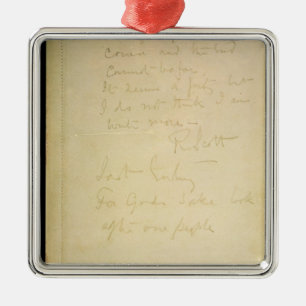 course and the end
cannot be far.
It seems a pity but
I do not think I can
write more –
R. Scott
Last Entry
For Gods sake look
after our people